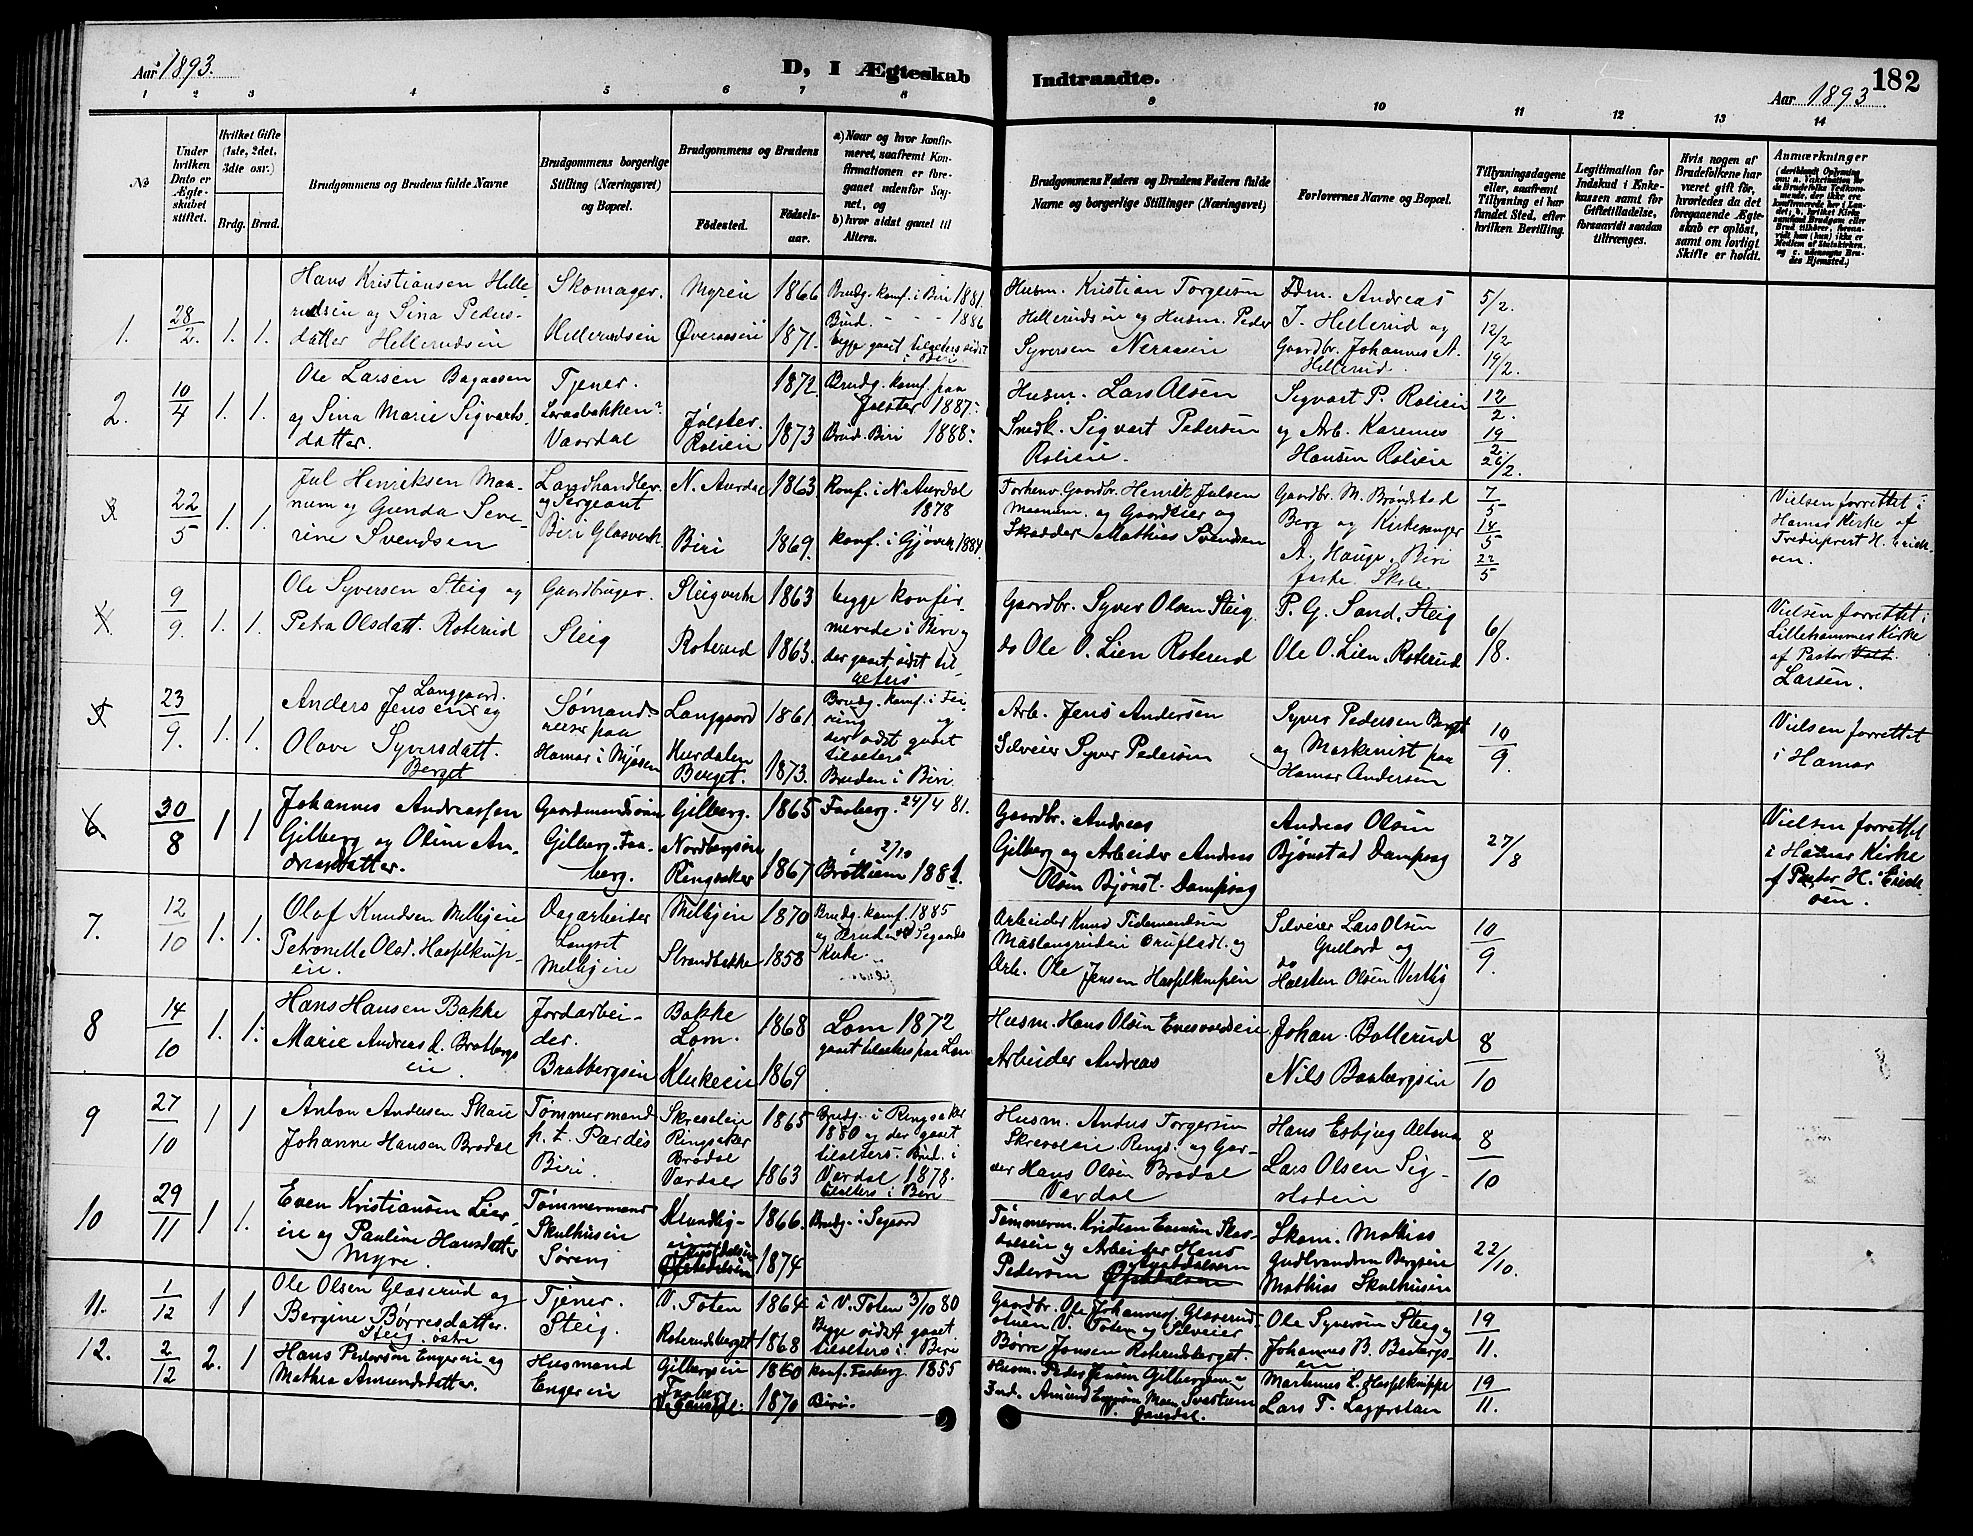 Aar 1893.
D, I Ægteskab Indtraadte.
182
Aar 1893
1 2 3 4 5 6 7 8 9 10 11 12 13 14
No
Under hvilken Dato er Ægteskabet stiftet.
Hvilket Gifte (1ste, 2det, 3die osv.)
Brdg. Brud.
Brudgommens og Brudens fulde Navne
Brudgommens borgerlige Stilling (Næringsvei) og Bopæl.
Brudgommens og Brudens
Fødested. Fødselsaar.
a) Naar og hvor konfirmeret, saafremt Konfirmationen er foregaaet udenfor Sognet, og
b) hvor sidst gaaet til Alters.
Brudgommens Faders og Brudens Faders fulde Navne og borgerlige Stillinger (Næringsvei)
Forlovernes Navne og Bopæl.
Tillysningsdagene eller, saafremt Tillysning ei har fundet Sted, efter hvilken Bevilling.
Legitimation for Indskud i Enkekassen samt for Giftetilladelse, forsaavidt saadan tiltrænges.
Hvis nogen af Brudefolkene har været gift før, hvorledes da det foregaaende Ægteskab er opløst, samt om lovligt Skifte er holdt.
Anmærkninger
1. 28/2. 1. 1.
Hans Kristiansen Hellerudsein og Sina Pedersdatter Hellerudsein
Skomager. Hellerudsein
Myrein 1866
Øveraasein 1871.
Brudg. konf. i Biri 1881.
Brud. - - - 1886
begge gaaet tilalters sidst i Biri
Husm. Kristian Torgersen
Hellerudsein og Husm. Peder
Syversen Neraasein
Edm. Andreas
J. Hellerud og
Gaardbr. Johannes A.
Hellerud.
5/2. 12/2 19/2.
2. 10/4 1. 1.
Ole Larsen Bagaasen
og Sina Marie Sigvartsdatter.
Tjener.
Vaardal
1872.
Jølster.
Rolien 1873
Brudg. konf. paa
Jølster 1887.
Brud. Biri 1888.
Husm. Lars Olsen
Snedk. Sigvart Pedersen
Rolien.
Sigvart P. Rolien
og Arb. Karenus
Hansen Rolien
12/2. 19/2. 26/2.
3 22/5 1. 1.
Jul Henriksen Maanum og Gunda Severine Svendsen
Landhandler og Sergeant
Biri Glasverk.
N. Aurdal 1863
Biri 1869.
Konf. i N. Aurdal 1878
konf. i Gjøvik 1884.
Forhenv. Gaardbr. Henrik Julsen
Maanum. og Gaardeier og
Skrædder Mathias Svendsen
Gaardbr. M. Brøndstad
Berg og Kirkesanger
A. Hauge. Biri
7/5 14/5 22/5
Vielsen forrettet i
Hamar Kirke af
4. 9/9. 1. 1.
Ole Syversen Steig og
Petra Olsdatt. Roterud
Gaardbruger.
Steig
Steigverke 1863
Roterud 1863.
begge konfirmerede i Biri og
der gaaet sidst tilalters
Gaardbr. Syver Olsen Steig
do Ole O. Lien Roterud
P. G. Sand, Steig
Ole O. Lien. Roterud
6/8.
Vielsen forrettet i
Lillehammer Kirke
af Pastor
Larsen.
5 23/9. 1. 1.
Anders Jensen Langgaard. og
Olave Syversdatt.
Berget
Sømand
Hamar i Mjøsen
Langgaard 1861
Hurdalen
Berget. 1873.
Brudg. konf. i Feiring og
der sidst gaaet
tilalters
Bruden i Biri
Arb. Jens Andersen
Selveier Syver Pedersen
Syver Pedersen Berget
og Maskinist paa
Hamar Andersen
10/9.
Vielsen forrettet
i Hamar
6. 30/8 1 1
Johannes Andreassen
Gilberg og Oline Andreasdatter.
Gaardmandssøn
Gilberg. Faaberg.
Gilberg. 1865
Nordbergseie
Ringsaker 1867
Faaberg. 24/4 81.
2/10
Brøttum 1881.
Gaardbr. Andreas
Gilberg og Arbeider Andreas
Olsen Bjønst. Dampsag
Andreas Olsen
Bjønstad Dampsag
27/8
Vielsen forrettet
i Hamar Kirke
af Pastor H.
7. 12/10 1. 1.
Olaf Knudsen Melbyeie
Petronelle Olsd. Haspelknipen.
Dagarbeider
Langset
Melbyeie
Melbyeie 1870
Strandbakke 1858
Brudg. konf. 1885
Arbeider Knud Tidemandsen
Arb. Ole Jensen Haspelknipen
Selveier Lars Olsen
Grellord og
do
Halsten Olsen Vestby
10/9.
8 14/10 1. 1.
Hans Hansen Bakke
Marie Andreas d. Bratbergsein.
Jordarbeider.
Bratbergsein
Bakke
Lom. 1868
Klukein 1869
Lom 1872
gaaet tilalters paa Lom
Husm. Hans Olsen
Arbeider Andreas
Johan Bollerud
Nils Baabergsein
8/10
9 27/10 1 1
Anton Andersen Skau
Johanne Hansen Brodal
Tømmermand
p. t. Pardis
Biri.
Skreseleie
Ringsaker 1865
Brodal
Vardal 1863
Brudg. i Ringsaker
1880 og der gaaet
tilalters. Brud. i
Vardal 1878.
tilalters i Biri
Husm. Anders Torgersen
Skreseleie Rings. og Gardder Hans Olsen Brodal
Vardal
Hans Esbjug Altona
Lars Olsen
8/10
10 29/11 1 1.
Even Kristiansen
og Pauline Hansdatter
Myre.
Tømmermand
Skulhusein
Klundby- 1866.
1874
Brudg. i Segaard
Tømmerm. Kristian Evensen
og Arbeider Hans
Pedersen
Skom. Mathias
Gudbrandsen Bergsein
Mathias Skulhusein
22/10.
11. 1/12 1 1
Ole Olsen Glæserud og
Bergine Børresdatter.
Steig. østre
Tjener.
Steig.
V. Toten 1864
Roterudberget 1868
i V. Toten 3/10 80
Begge sidst gaaet
tilalters i Biri
Gaardbr. Ole Johannes. Glæserud.
V. Toten og Selveier
Børre Jonsen Roterudberget.
Ole Syversen Steig og
Johannes B. Bratbergsen
19/11.
12. 2/12 2. 1
Hans Pedersen Engeein og
Mathea Amundsdatter.
Husmand
Engeein
Gilbergsein 1860
Faaberg
1870
konf. Faaberg. 1855
Biri.
Husm. Peder Jensen Gilbergsein
Martinus L. Haspelknippe
Lars T.
19/11.